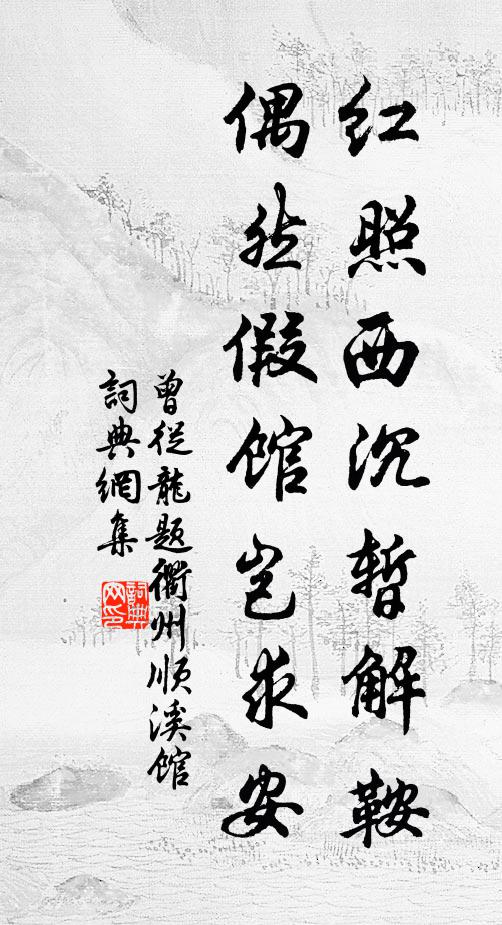 红照西沉暂解鞍
偶然假馆岂求安
曾從龍题衢州顺溪馆
詞典網集
詞典
网印